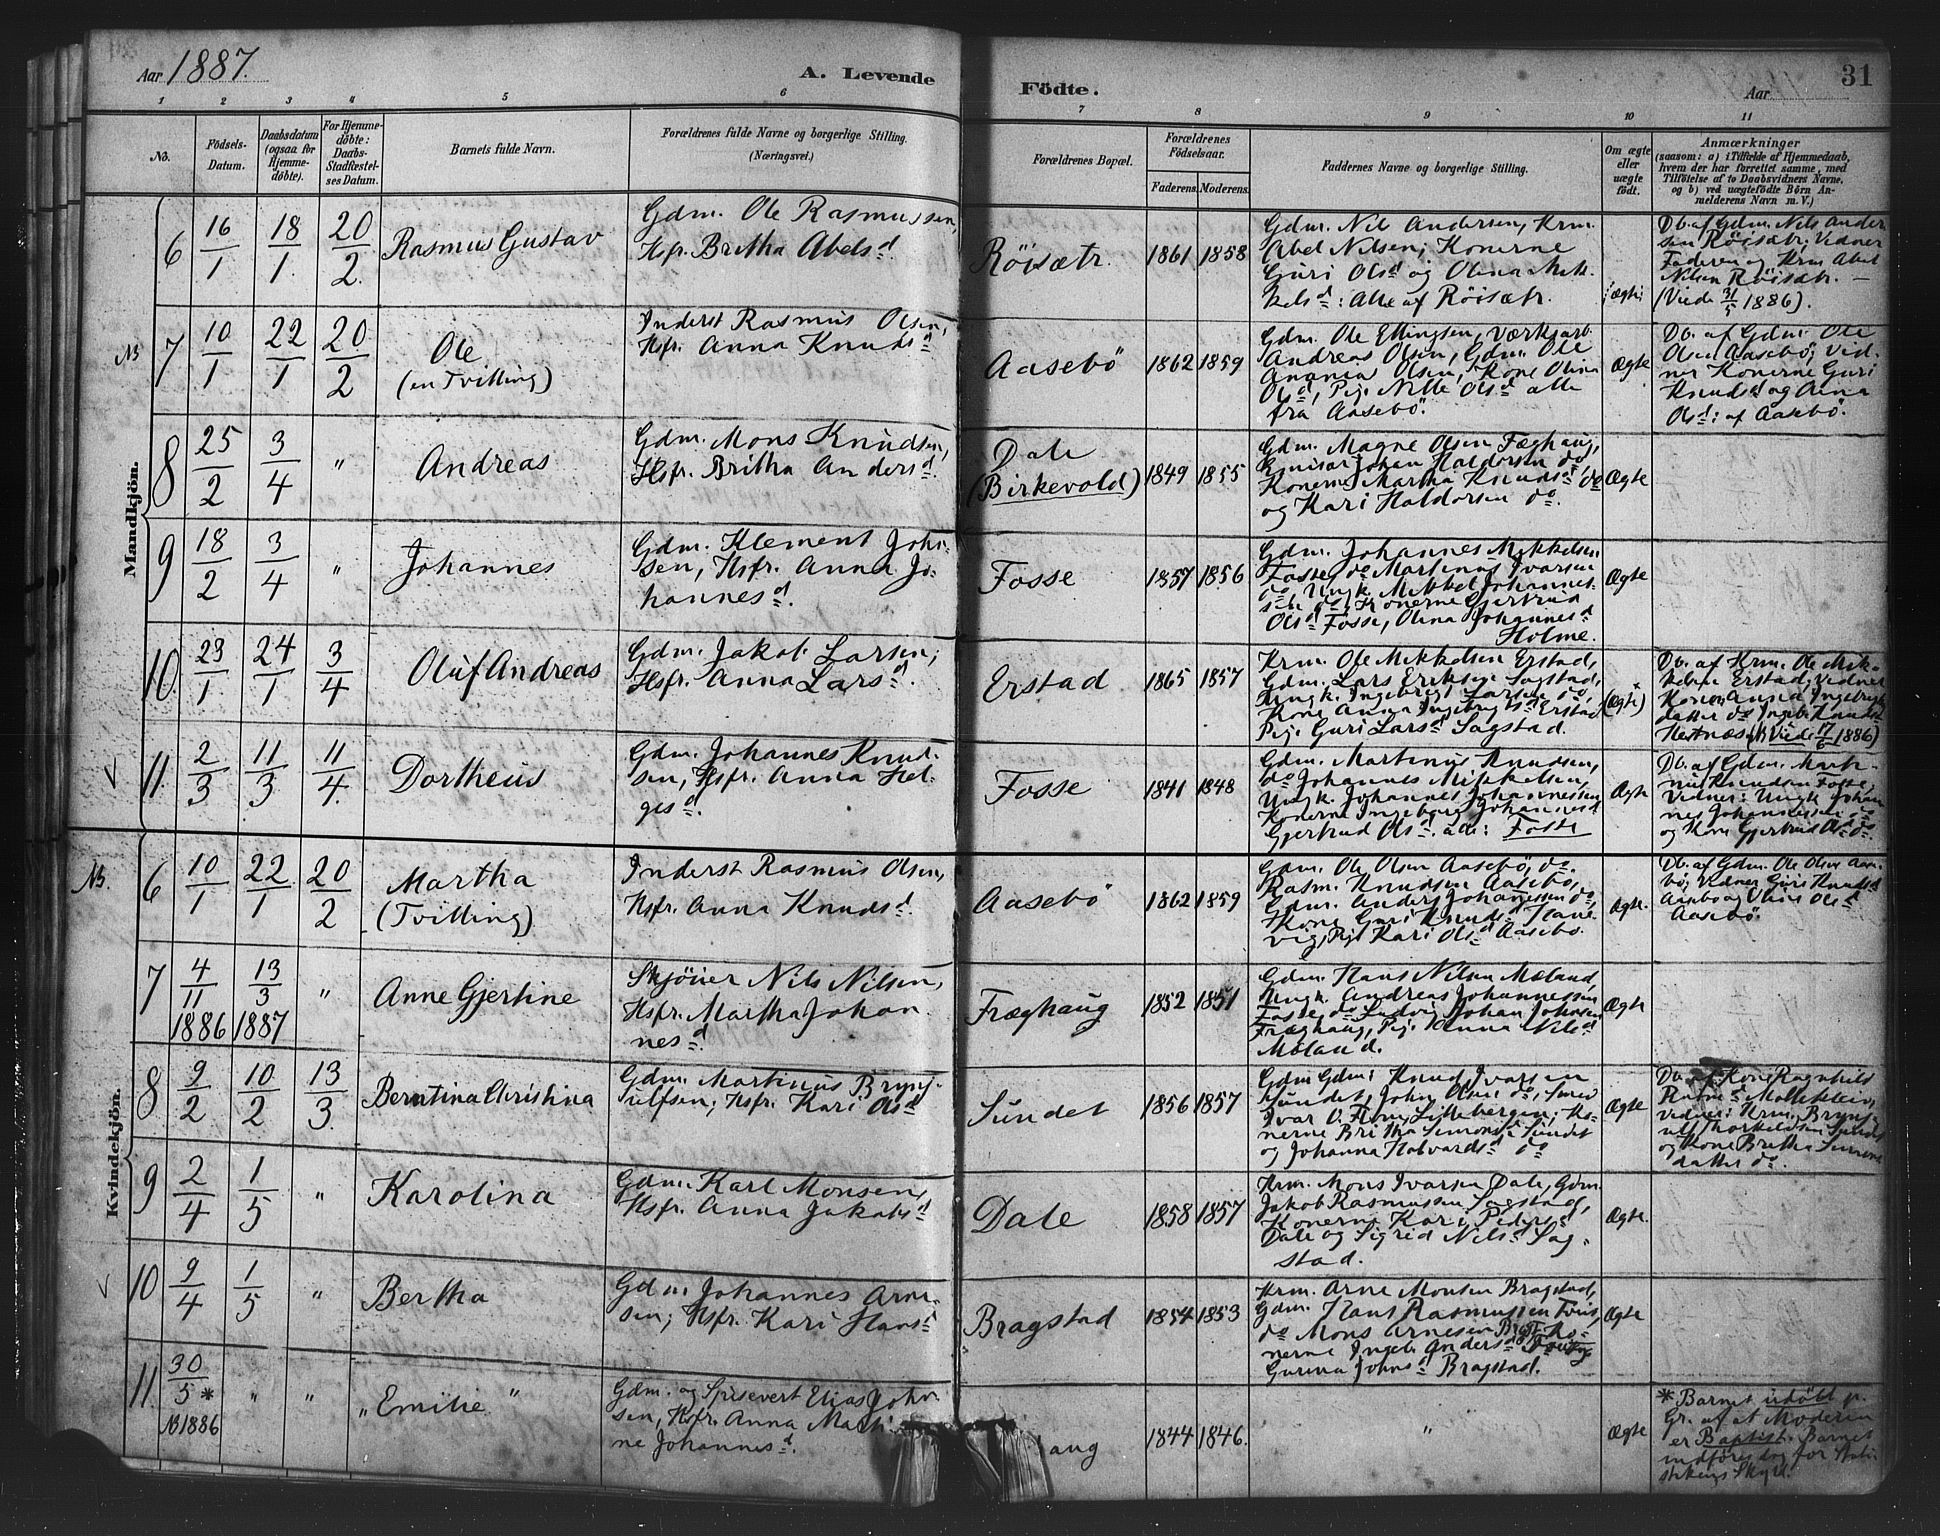 Aar 1887.
A. Levende
Födte.
31
Aar
1 2 3 4 5 6 7 8 9 10 11
No.
Födsels-
Datum.
Daabsdatum
(ogsaa for
Hjemme-
döbte).
For Hjemme-
döbte:
Daabs-
Stadfæstel-
ses Datum.
Barnets fulde Navn.
Forældrenes fulde Navne og borgerlige Stilling.
(Næringsvei.)
Forældrenes Bopæl.
Forældrenes
Födselsaar.
Faderens. Moderens.
Faddernes Navne og borgerlige Stilling.
Om ægte
eller
uægte
födt.
Anmærkninger
(saasom: a) i Tilfælde af Hjemmedaab,
hvem der har forrettet samme, med
Tilföielse af to Daabsvidners Navne,
og b) ved uægtefödte Börn An-
melderens Navn m. V.)
Mandkjön.
6 16/1 18/1. 20/2. Rasmus Gustav
Gdm. Ole Rasmussen,
Hsfr. Britha Abelsd.
Röisætr. 1861 1858
Gdm. Nils Andersen, Krm.
Abel Nilsen; Konerne
Guri Olsd og Olina Mik-
kelsd: Alle af Röisætr.
Ægte
Db. af Gdm. Nils Ander
sen Röisætr; Vidner
Faderen og Krm Abel
Nilsen Röisætr. —
(Viede 31/5 1886).
NB 7 10/1 22/1 20/2 Ole
(en Tvilling)
Inderst Rasmus Olsen,
Hsfr. Anna Knudsd
Aasebö 1862 1859
Gdm. Ole Ellingsen, Værksarb.
Andreas Olsen, Gdm. Ole
Ananias Olsen, Kone Olina
Olsd, Pig. Nille Olsd alle
fra Aasebö.
Ægte
Db. af Gdm. Ole
Olsen Aasebö; Vid-
ner Konerne Guri
Knudsd og Anna
Olsd: af Aasebö.
8 25/2 3/4 " Andreas
Gdm. Mons Knudsen,
Hsfr. Britha Andersd.
Dale
(Birkevold) 1849 1855
Gdm. Magne Olsen Fæghaug,
Emisær Johan Haldorsen do,
Konerne Martha Knudsd do
og Kari Haldorsen do.
Ægte
9 18/2 3/4 " Johannes
Gdm. Klement Johan-
sen, Hsfr. Anna Jo-
hannesd.
Fosse 1857 1856
Gdm. Johannes Mikkelsen
Fosse, do Martinus Ivarsen
do, Ungk. Mikkel Johannes-
sen do, Konerne Gjertrud
Olsd Fosse, Olina Johannesd
Holme.
Ægte
10 23/1. 24/1 3/4 Oluf Andreas
Gdm. Jakob Larsen;
Hsfr. Anna Larsd.
Erstad 1865 1857
Krm. Ole Mikkelsen Erstad,
Gdm. Lars Eriksen Sagstad,
Ungk. Ingebrigt Larsen do,
Kone Anna Ingebrigtsd Erstad
Pig. Guri Larsd Sagstad.
(Ægte)
Db. af Krm. Ole Mik-
kelsen Erstad; Vidner
Konen Anna Ingebrigts
datter do Ingeb. Knudsd
Hestnæs (Viede 17/6 1886)
11. 2/3 11/3 11/4. Dortheus
Gdm. Johannes Knud-
sen, Hsfr. Anna Hel-
gesd.
Fosse 1841 1848
Gdm. Martinus Knudsen,
do Johannes Mikkelsen,
Ungk. Johannes Johannessen
Konerne Ingeborg Johannesd
Gjertrud Olsd. alle: Fosse
Ægte
Db. af Gdm. Marti-
nus Knudsen Fosse;
Vidner: Ungk Johan
nes Johannessen do
og Kone Gjertrud Olsd do
Kvindekjön.
NB. 6 10/1 22/1 20/2 Martha
(Tvilling)
Inderst Rasmus Olsen,
Hsfr. Anna Knudsd.
Aasebö 1862 1859
Gdm. Ole Olsen Aasebö, do.
Rasm. Knudsen Aasebö,
Gdm. Anders Johannessen do,
Kone Guri Knudsd Hane-
vig, Pig. Kari Olsd Aasebö.
Ægte.
Db. af Gdm. Ole Olsen Aase-
bö; Vidner Guri Knudsd
Aasebö og Olina Olsd
Aasebö.
7 4/11 1886 13/3 1887 " Anne Gjertine
Skjöier Nils Nilsen,
Hsfr. Martha Johan
nesd.
Fræghaug 1852 1851
Gdm. Hans Nilsen Mæland,
Ungk. Andreas Johannessen
Fosse, do Ludvig Johan Johnsen
Fræghaug, Pig. Anna Nilsd
Mæland.
Ægte
8 9/2 10/2 13/3 Berntina Christina
Gdm. Martinus Brynj-
ulfsen; Hsfr. Kari Olsd
Sundet 1856 1857
Gdm. Gdm: Knud Ivarsen
Sundet, John Olsen do, Smed
Ivar O. Lillebergen; Ko-
nerne Britha Simonsd Sundet
og Johanna Halvardsd do
Ægte
Db. af Kone Ragnhild
Rasmd
Vidner: Krm. Brynj-
ulf Thorkildsen Sundet
og Kone Britha Simons
datter do.
9 2/4 1/5 " Karolina
Gdm. Karl Monsen,
Hsfr. Anna Jakobsd
Dale 1858 1857
Krm. Mons Ivarsen Dale, Gdm.
Jakob Rasmussen Sagstad,
Konerne Kari Pedersd
Dale og Sigrid Nilsd Sag-
stad.
Ægte.
10 9/4 1/5 " Bertha
Gdm. Johannes Arne-
sen; Hsfr. Kari Hansd
Bragstad 1854 1853
Krm. Arne Monsen Bragstad,
Gdm. Hans Rasmussen
do Mons Arnesen Ko-
nerne Ingeb. Andersd
Gurina Johnsd Bragstad.
Ægte
11. 30/5* NB 1886 " " „Emilie"
Gdm. og Spisevert Elias John-
sen, Hsfr. Anna Marti
ne Johannesd.
aug 1844 1846.
"
Ægte
* Barnet udöbt p.
Gr. af at Moderen
er Baptist. Barnet
indföres dog for Stati-
stikens Skyld.